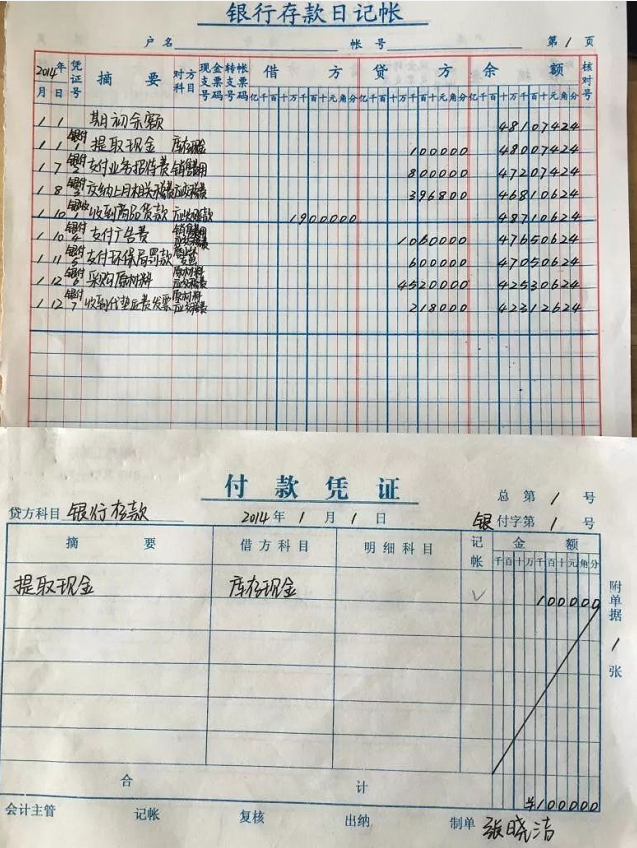 银行存款日记帐
户名 帐号 第1页
2014年 凭证号 摘要 对方科目 现金支票号码 转帐支票号码 借方 贷方 余额 核对号
月 日 亿千百十万千百十元角分 亿千百十万千百十元角分 亿千百十万千百十元角分
1 1 期初余额 48107424
1 1 银付1 提取现金 库存现金 100000 48007424
1 7 银付2 支付业务招待费 销售费用 800000 47207424
1 8 银付3 交纳上月相关税费 应交税费 396800 46810624
1 10 银收1 收到商品货款 应收账款 1900000 48710624
1 10 银付4 支付广告费 销售费用 应交税费 1060000 47650624
1 11 银付5 支付环保局罚款 600000 47050624
1 12 银付6 采购原材料 原材料 应交税费 4520000 42530624
1 12 银付7 收到代垫运费发票 原材料 应交税费 218000 42312624
付款凭证
总第1号
贷方科目 银行存款 2014年1月1日 银付字第1号
摘要 借方科目 明细科目 记帐 金额
千百十万千百十元角分
提取现金 库存现金 √ 100000
附单据1张
合计 ¥100000
会计主管 记帐 复核 出纳 制单 张晓洁